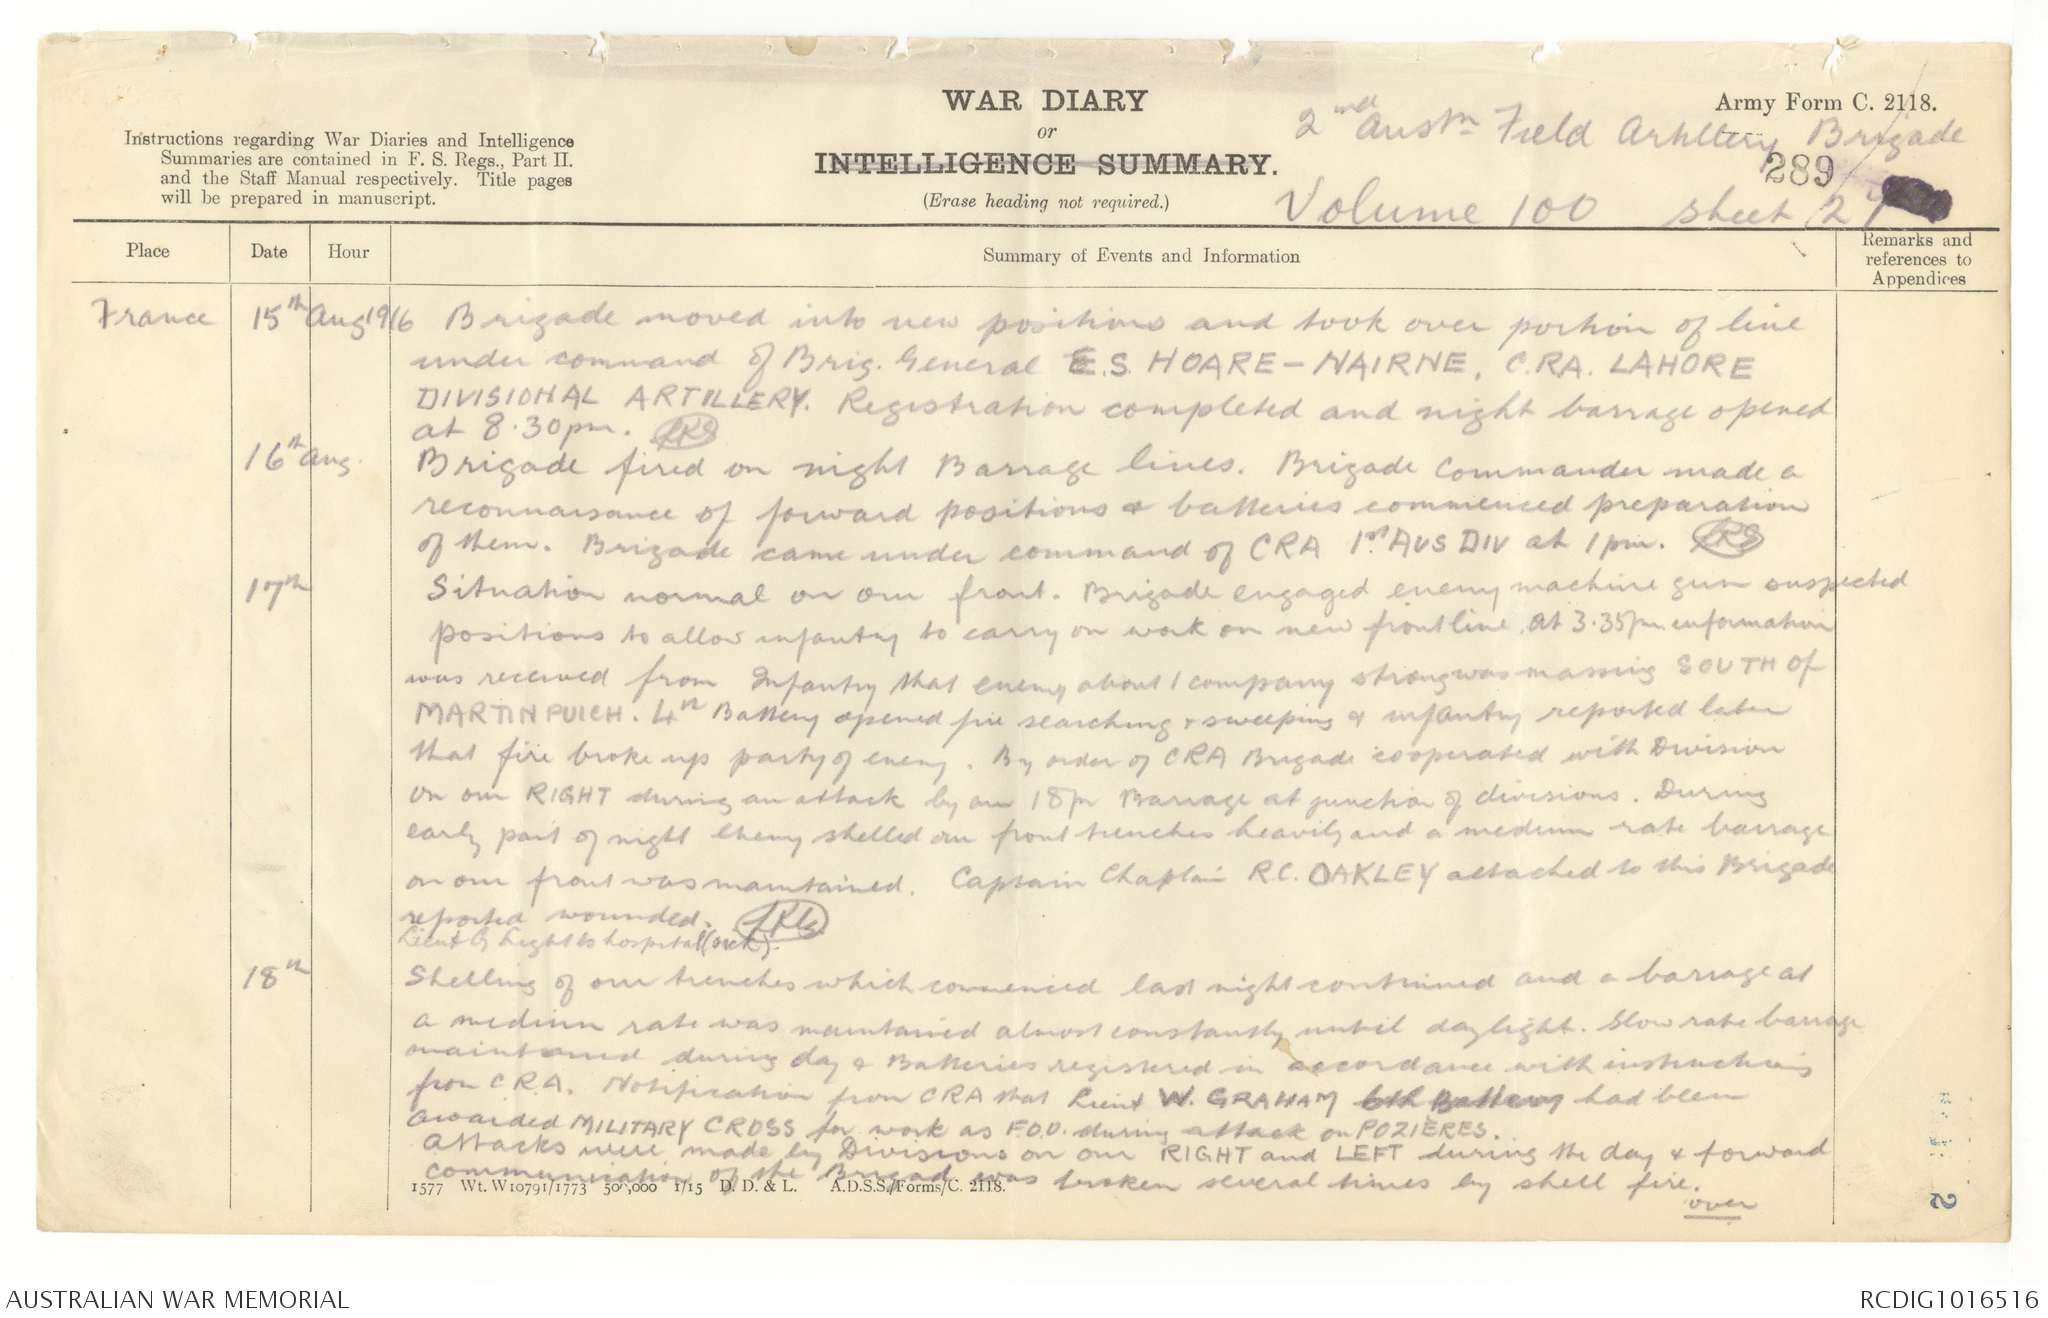 WAR DIARY
or
INTELLIGENCE SUMMARY.
(Erase heading not required.)
Instructions regarding War Diaries and Intelligence
Summaries are contained in F. S. Regs., Part II.
and the Staff Manual respectively. Title pages
will be prepared in manuscript.
Army Form C. 2118.
2nd Austn Field Artillery Brigade
289
Volume 100 sheet 2
Place Date Hour Summary of Events and Information Remarks and references to Appendices
France 15th Aug 1916 Brigade moved into new positions and took over portion of line
under command of Brig. General E.S. HOARE-NAIRNE, C.RA. LAHORE
DIVISIONAL ARTILLERY. Registration completed and night barrage opened
at 8.30pm.
16th Aug. Brigade fired on night Barrage lines. Brigade Commander made a
reconnaisance of forward positions & batteries commenced preparation
of them. Brigade came under command of CRA 1st AUS DIV at 1pm.
17th Situation normal on our front. Brigade engaged enemy machine gun suspected
positions to allow infantry to carry on work on new front line. At 3.35pm information
was received from Infantry that enemy about 1 company strong was massing SOUTH of
MARTINPUICH. 4th Battery opened fire searching & sweeping & infantry reported later
that fire broke up party of enemy. By order of CRA Brigade cooperated with Division
on our RIGHT during an attack by an 18pr Barrage at junction of divisions. During
early part of night Enemy shelled our front trenches heavily and a medium rate barrage
on our front was maintained. Captain Chaplain R.C. OAKLEY attached to this Brigade
reported wounded.
Lieut G Light to hospital (sick).
18th Shelling of our trenches which commenced last night continued and a barrage at
a medium rate was maintained almost constantly until daylight. Slow rate barrage
maintained during day & Batteries registered in accordance with instructions
from C.R.A. Notification from CRA that Lieut W. GRAHAM 6th Battery had been
awarded MILITARY CROSS for work as F.O.O. during attack on POZIERES.
Attacks were made by Divisions on our RIGHT and LEFT during the day & forward
communication of the Brigade was broken several times by shell fire.
over
1577 Wt. W10791/1773 500,000 1/15 D. D. & L. A.D.S.S./Forms/C. 2118.
AUSTRALIAN WAR MEMORIAL
RCDIG1016516